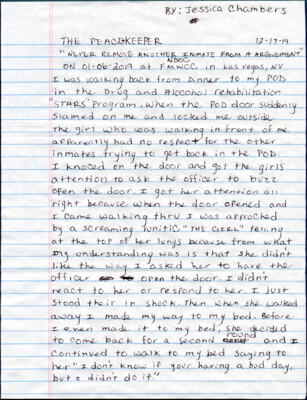 BY: Jessica Chambers
THE PEACEKEEPER 12-17-19
"NEVER REMOVE ANOTHER INMATE FROM A ARGUEMENT"
NDOC
ON 01-06-2019 at FMWCC in Las vegas, NV
I was walking back from Dinner to my POD
in the Drug and Alcohol rehabilitation
"STARS" Program. When the POD door suddenly
slamed on me and locked me outside
The girl who was walking in front of me
apparently had no respect for the other
inmates trying to get back in the POD.
I knoced on the door and got the girls
attention to ask the officer to buzz
open the door. I got her attention all
right because when the door opened and
I came walking thru I was approched
by a screaming "lunitic" "THE GIRL" yelling
at the top of her lungs because from what
my understanding was is that she didn't
like the way I asked her to have the
officer open the door. I didn't
react to her or respond to her. I just
stood their in shock. Then when she walked
away I made my way to my bed. Before
I even made it to my bed, she decided
round
to come back for a second and I
continued to walk to my bed saying to
her "I don't know if your having a bad day,
but I didn't do it."